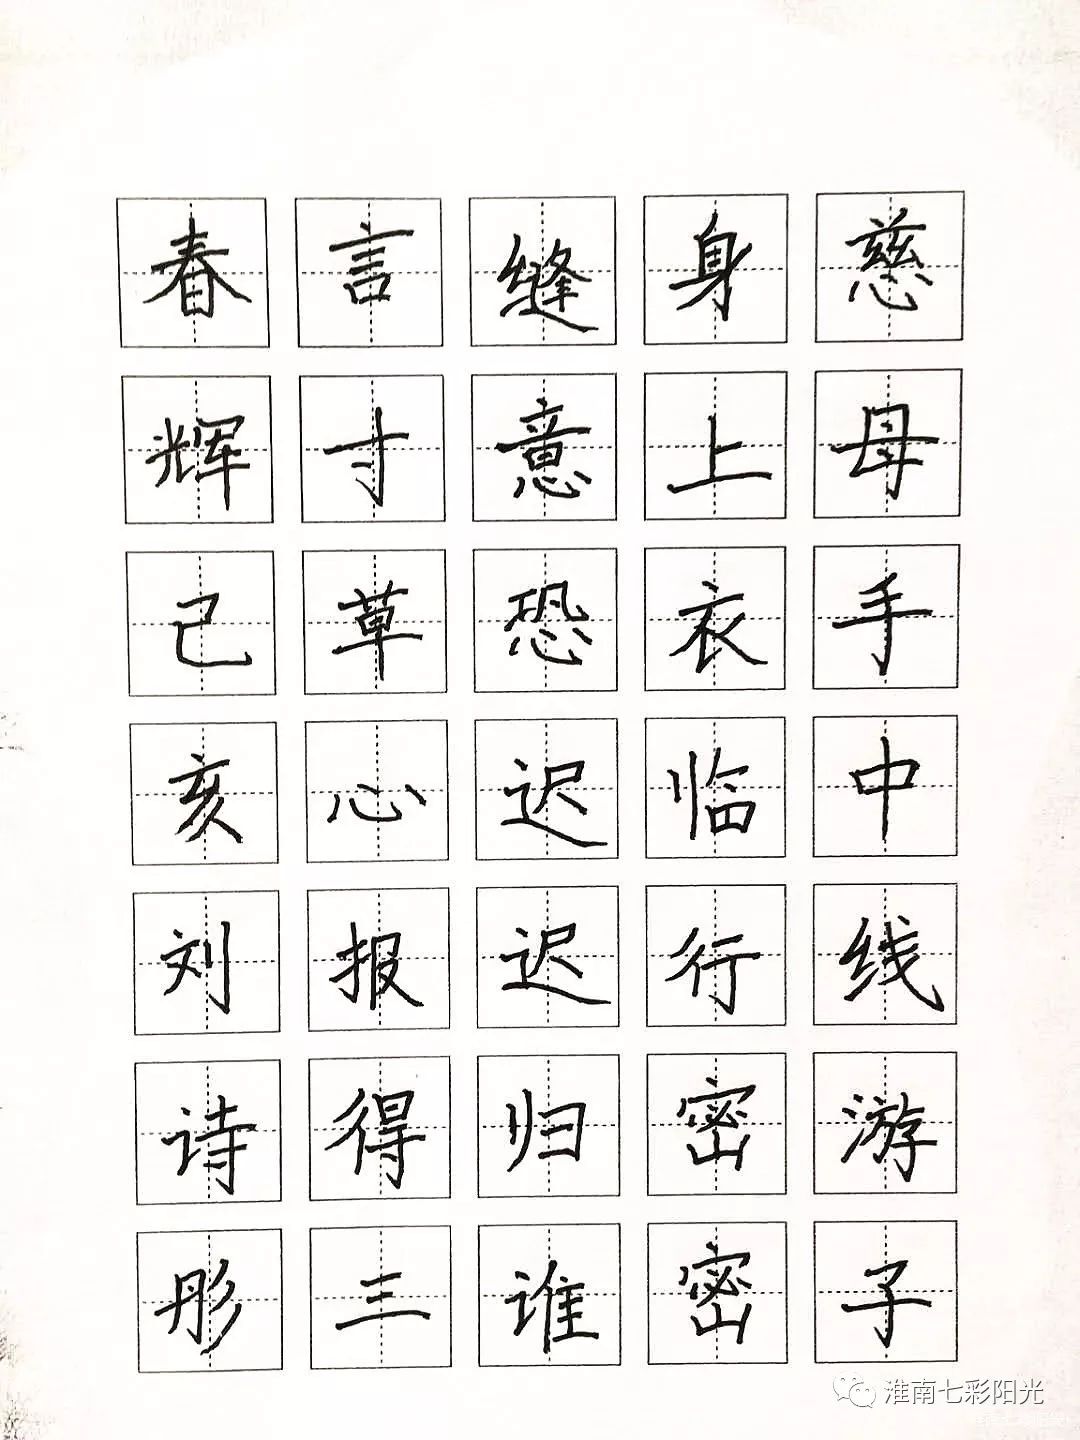 慈母手中线游子
身上衣临行密密
缝意恐迟迟归谁
言寸草心报得三
春辉己亥刘诗彤
淮南七彩阳光